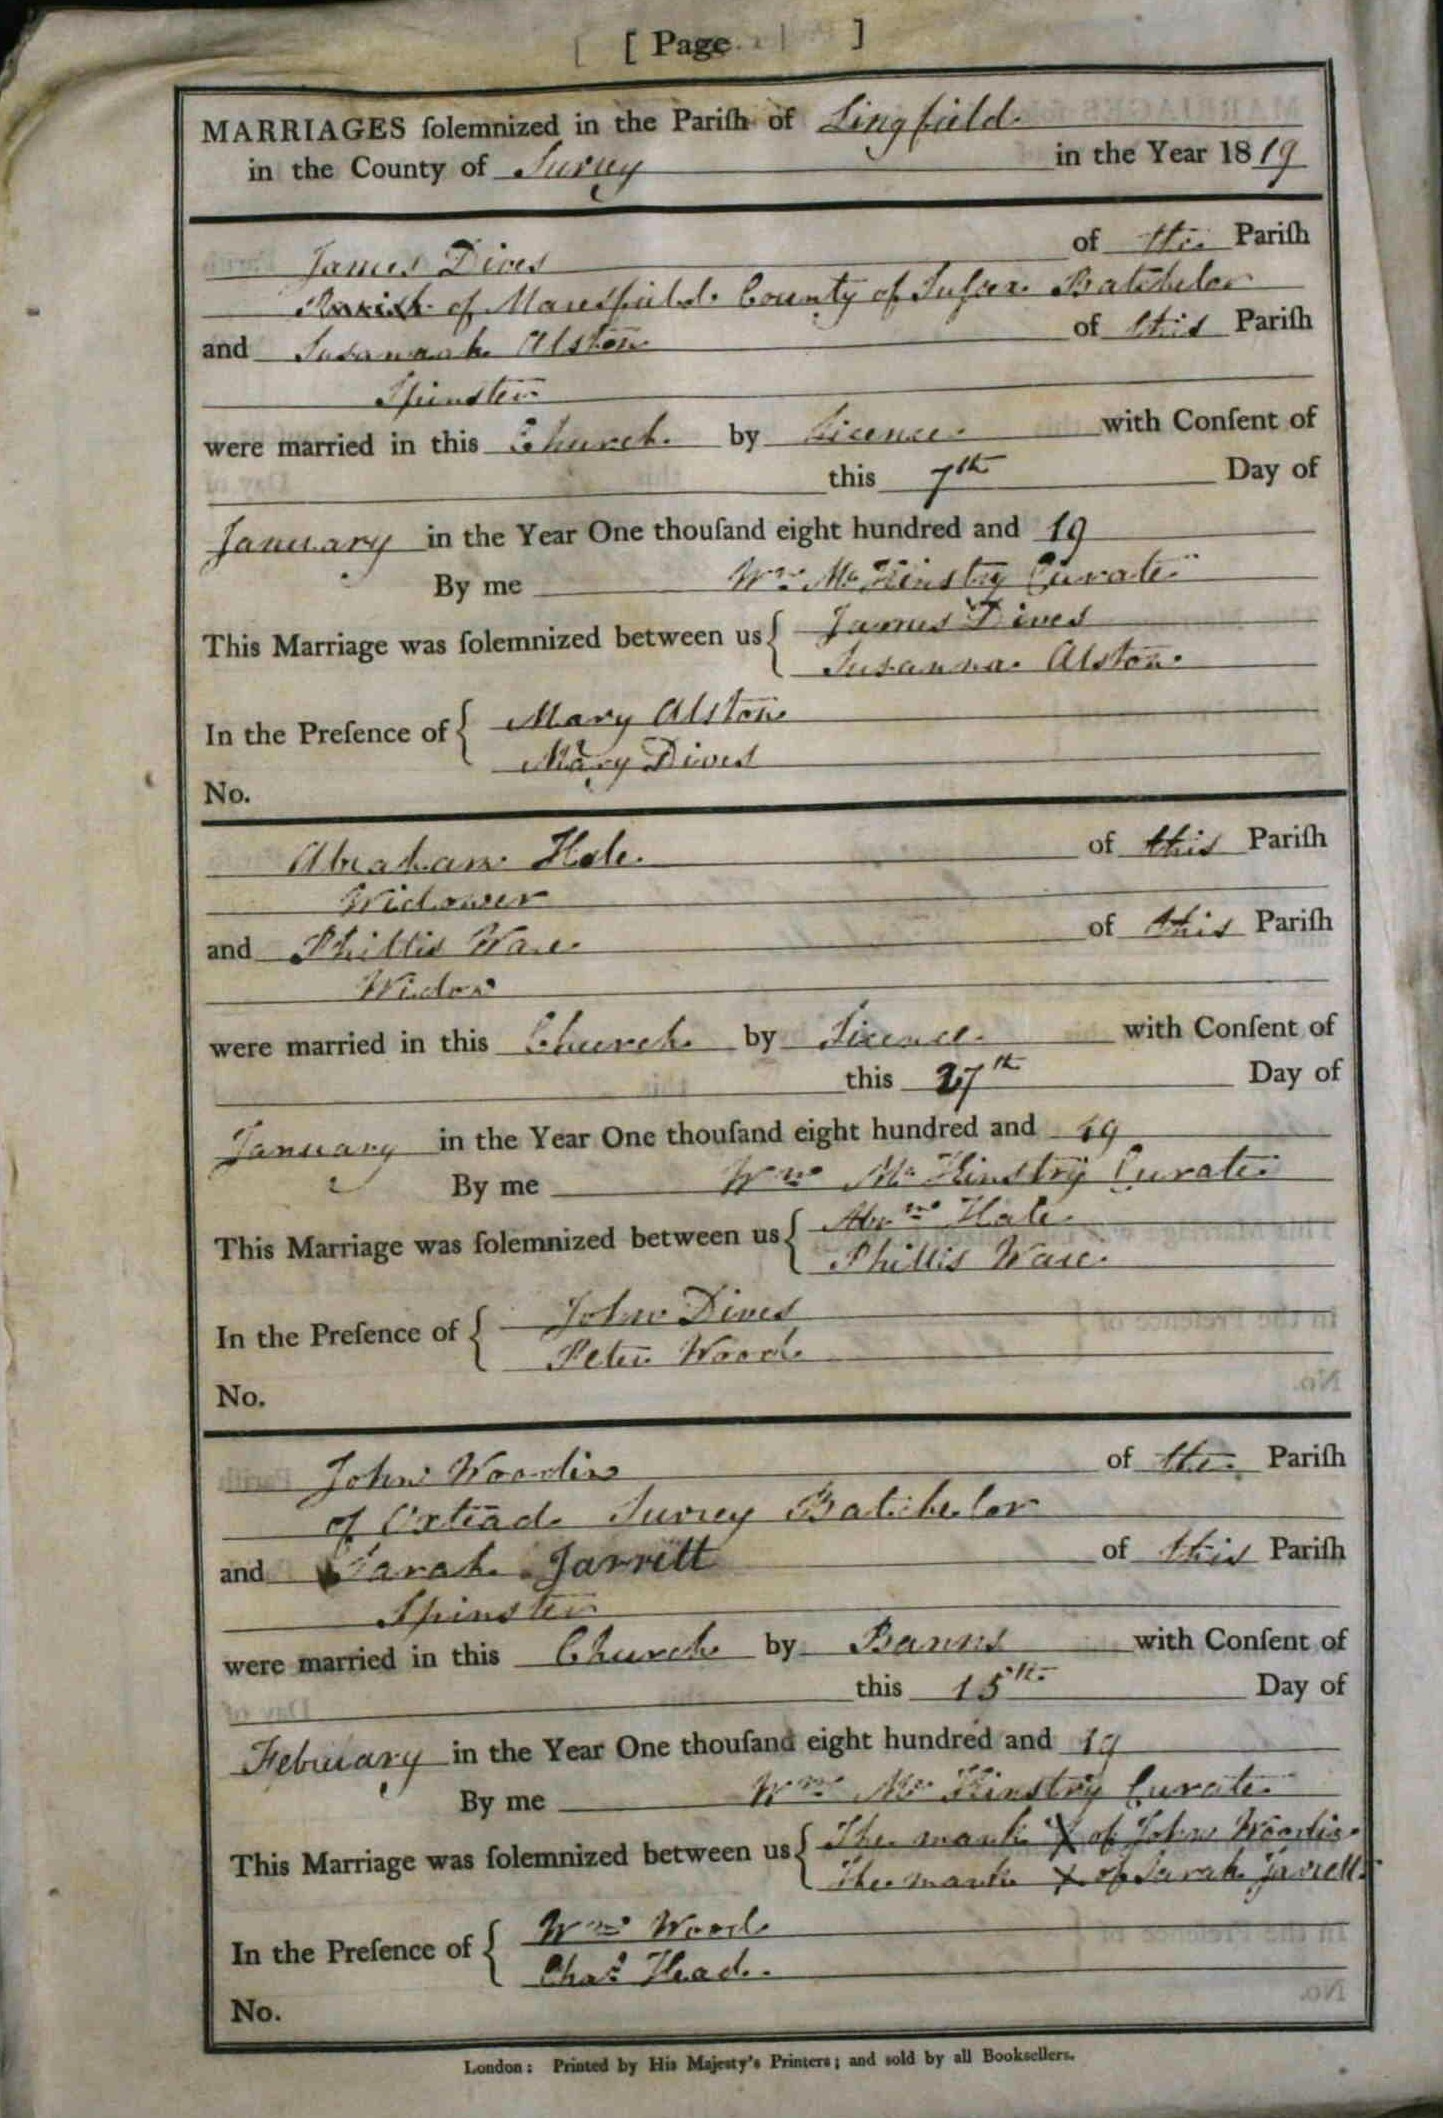 [ Page ]
MARRIAGES ſolemnized in the Pariſh of Lingfield
in the County of Surrey in the Year 1819
James Dives of the Pariſh
Parish of Maresfield County of Sussex Batchelor
and Susannah Alston of this Pariſh
Spinster
were married in this Church by Licence with Conſent of
this 7th Day of
January in the Year One thouſand eight hundred and 19
By me Wm McKinstry Curate
This Marriage was ſolemnized between us { James Dives
Susanna Alston
In the Preſence of { Mary Alston
Mary Dives
No.
Abraham Hale of this Pariſh
Widower
and Phillis Ware of this Pariſh
Widow
were married in this Church by Licence with Conſent of
this 27th Day of
January in the Year One thouſand eight hundred and 19
By me Wm McKinstry Curate
This Marriage was ſolemnized between us { Abrm Hale
Phillis Ware
In the Preſence of { John Dives
Peter Wood
No.
John Woodin of the Pariſh
of Oxtead Surrey Batchelor
and Sarah Jarritt of this Pariſh
Spinster
were married in this Church by Banns with Conſent of
this 15th Day of
February in the Year One thouſand eight hundred and 19
By me Wm McKinstry Curate
This Marriage was ſolemnized between us { The mark X of John Woodin
The mark X of Sarah Jarrett
In the Preſence of { Wm Wood
Chas Head
No.
London: Printed by His Majesty's Printers; and sold by all Booksellers.